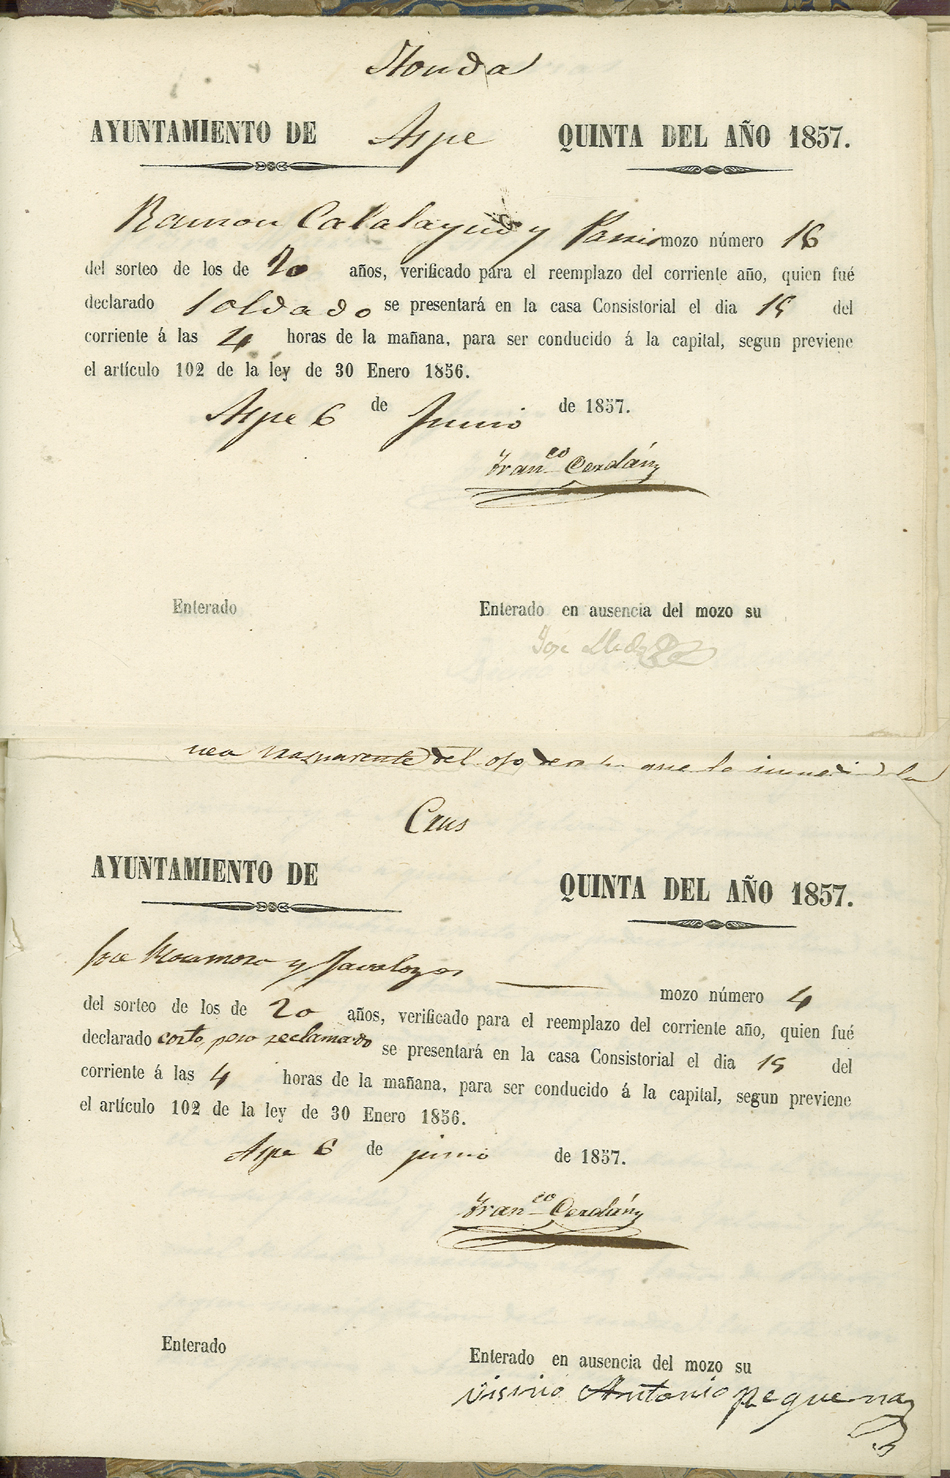 Honda
AYUNTAMIENTO DE Aspe QUINTA DEL AÑO 1857.
Ramon Calalayud y mozo número 16
del sorteo de los de 20 años, verificado para el reemplazo del corriente año, quien fué
declarado soldado se presentará en la casa Consistorial el dia 15 del
corriente á las 4 horas de la mañana, para ser conducido á la capital, segun previene
el artículo 102 de la ley de 30 Enero 1856.
Aspe 6 de Junio de 1857.
Franco Cerdán
Enterado
Enterado en ausencia del mozo su
Jose
trasparente del ojo que la
Crus
AYUNTAMIENTO DE QUINTA DEL AÑO 1857.
Jose Rocamora y Javaloyes mozo número 4
del sorteo de los de 20 años, verificado para el reemplazo del corriente año, quien fué
declarado corto, pero reclamado se presentará en la casa Consistorial el dia 15 del
corriente á las 4 horas de la mañana, para ser conducido á la capital, segun previene
el artículo 102 de la ley de 30 Enero 1856.
Aspe 6 de junio de 1857.
Franco Cerdán
Enterado
Enterado en ausencia del mozo su
visino Antonio